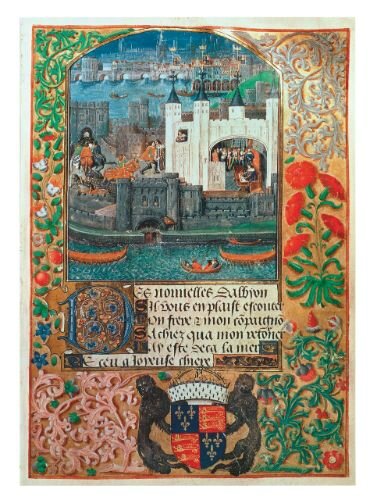 Des nouuelles dalbyon
Sil vous en plaist escouter
Mon frere & mon compaignõ
Sachiez qua mon retorner
Jay este deca la mer
Receu a Joyeuse chiere